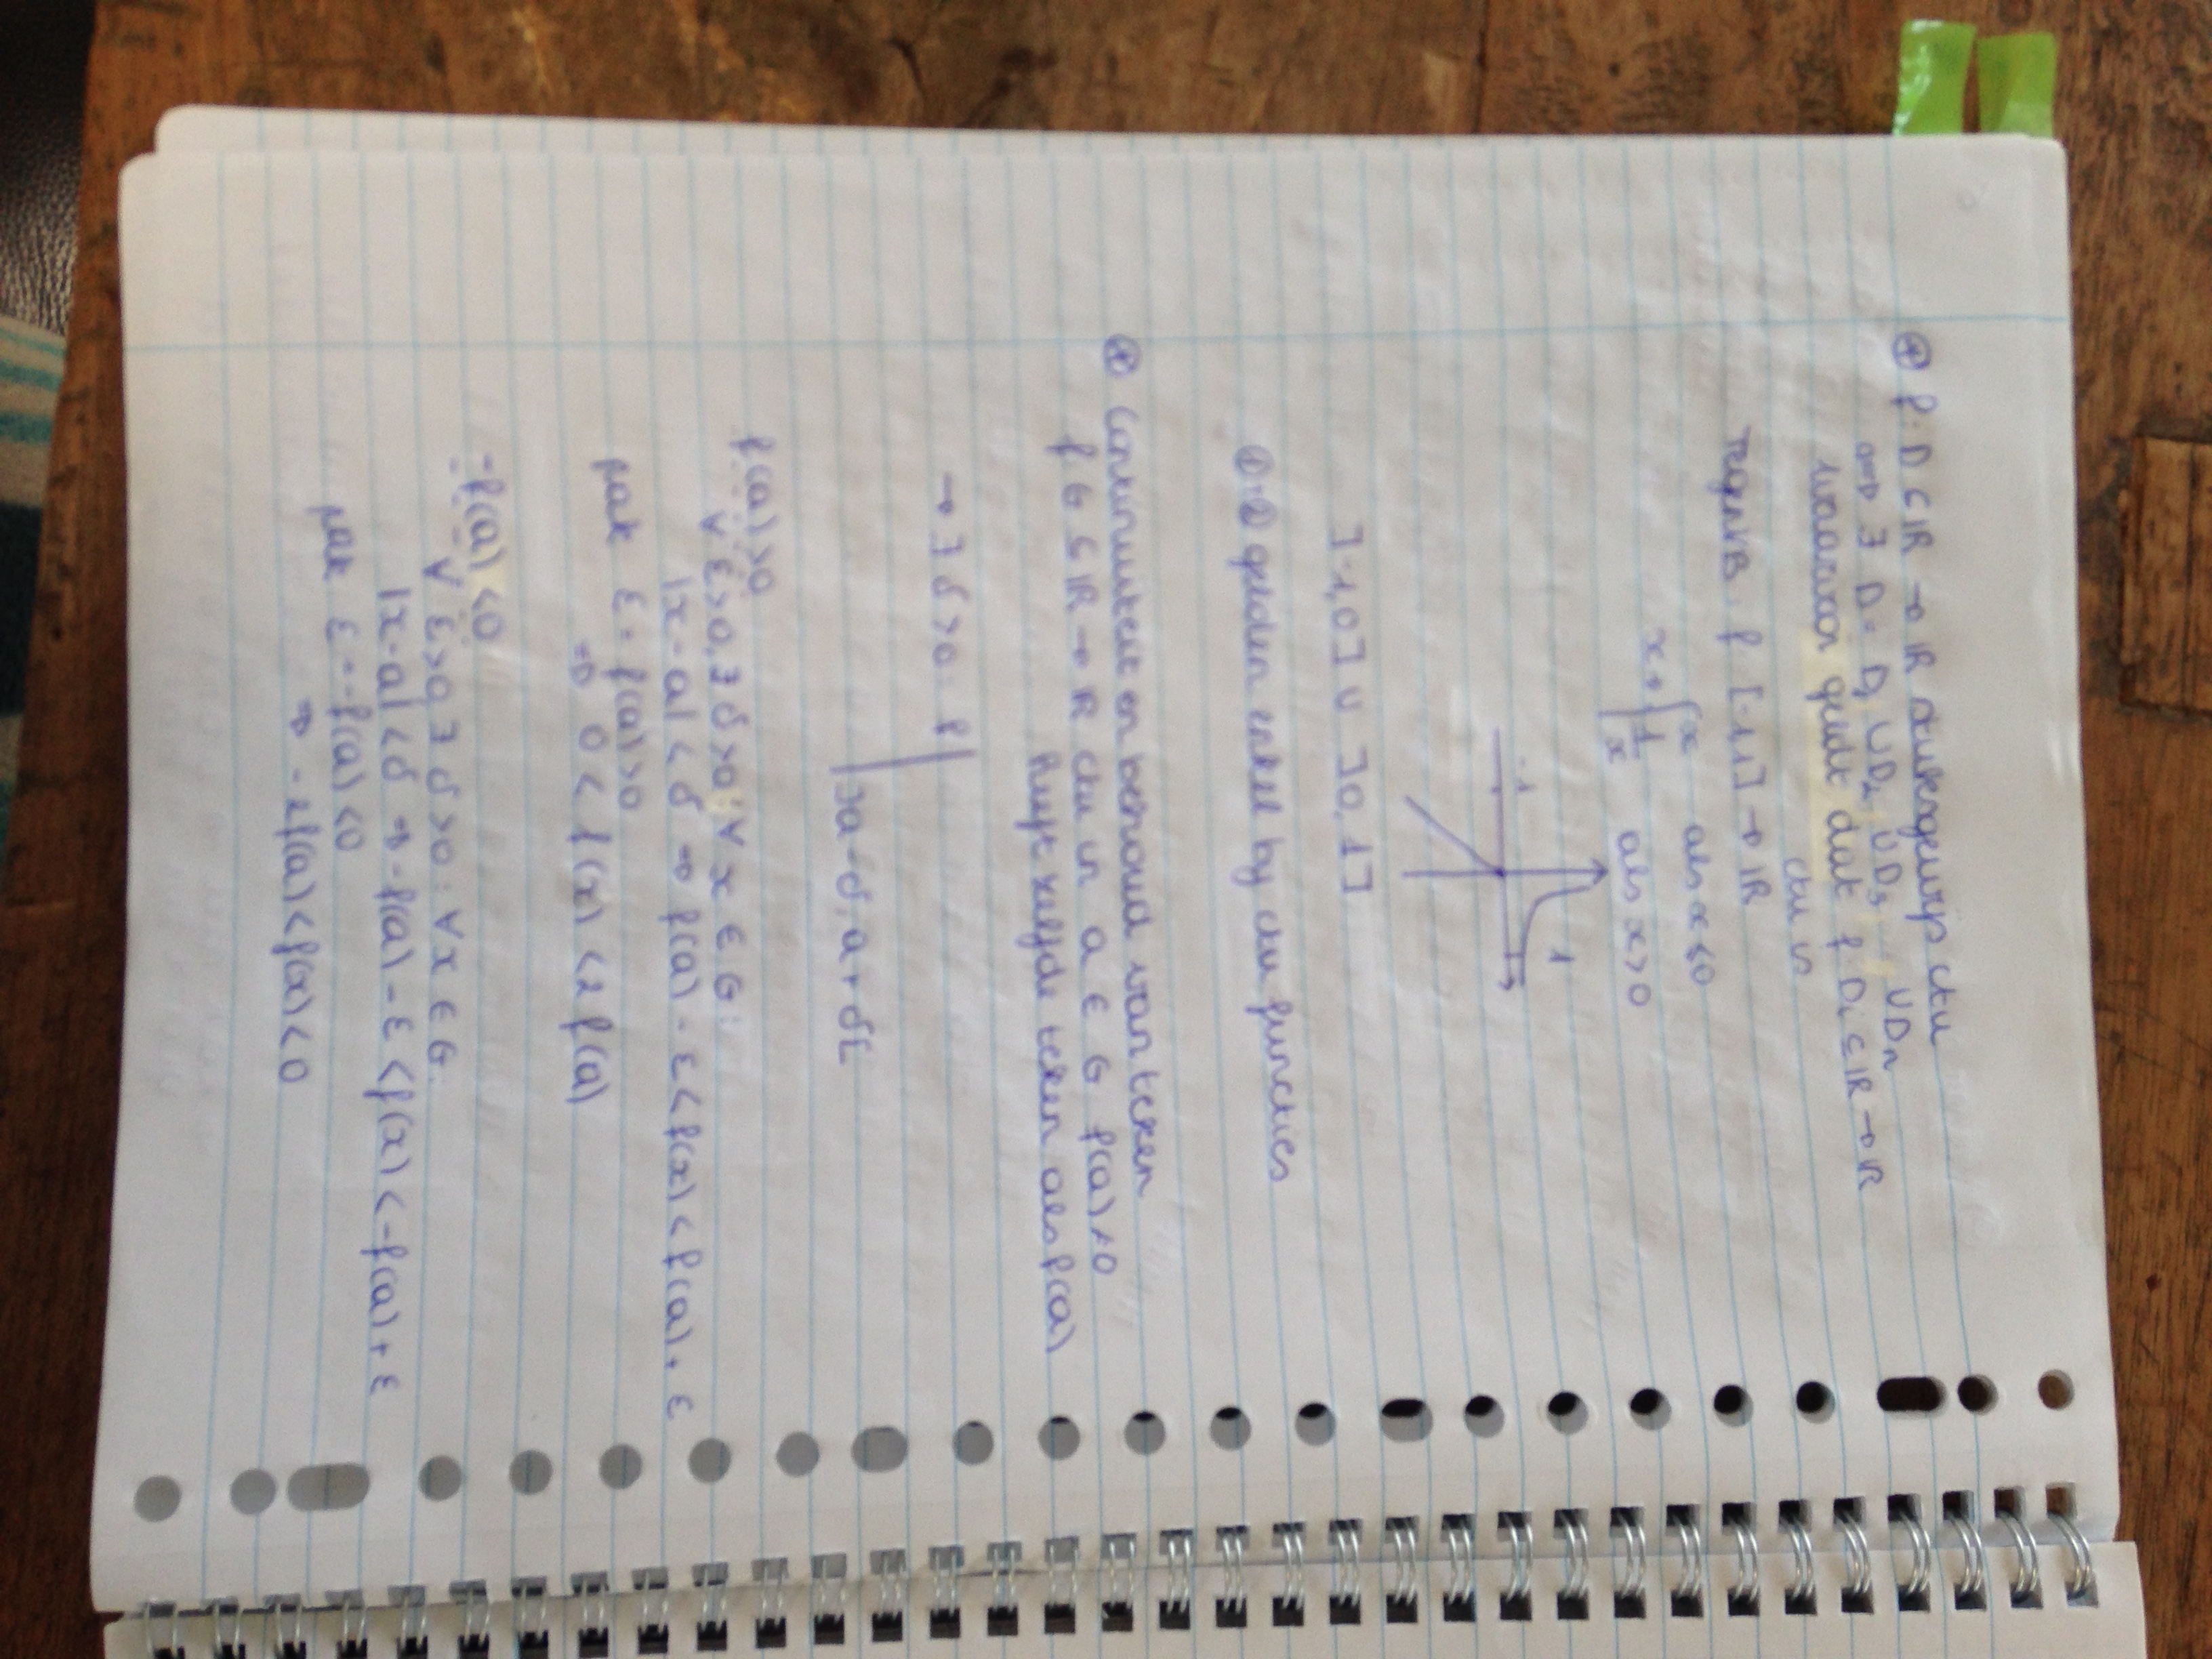 ⊛ f: D ⊆ IR → IR stuksgewijs ctu
⟺ ∃ D = D₁ ∪ D₂ ∪ D₃ ... ∪ Dₙ
waarvoor geldt dat f: Dᵢ ⊆ IR → IR
ctu is
TegenVB: f: [-1,1] → IR
x → { x als x ≤ 0
1/x als x > 0
-1 1
]-1,0] ∪ ]0,1]
①-② gelden enkel bij ctu functies
⊛ Continuïteit en behoud van teken
f: G ⊆ IR → IR ctu in a ∈ G f(a) ≠ 0
heeft zelfde teken als f(a)
→ ∃ δ > 0: f |
]a-δ, a+δ[
f(a) > 0
∀ ε > 0, ∃ δ > 0: ∀ x ∈ G:
|x-a| < δ ⇒ f(a) - ε < f(x) < f(a) + ε
pak ε = f(a) > 0
⇒ 0 < f(x) < 2 f(a)
-f(a) < 0
∀ ε > 0 ∃ δ > 0: ∀ x ∈ G:
|x-a| < δ ⇒ -f(a) - ε < f(x) < -f(a) + ε
pak ε = -f(a) < 0
⇒ -2f(a) < f(x) < 0